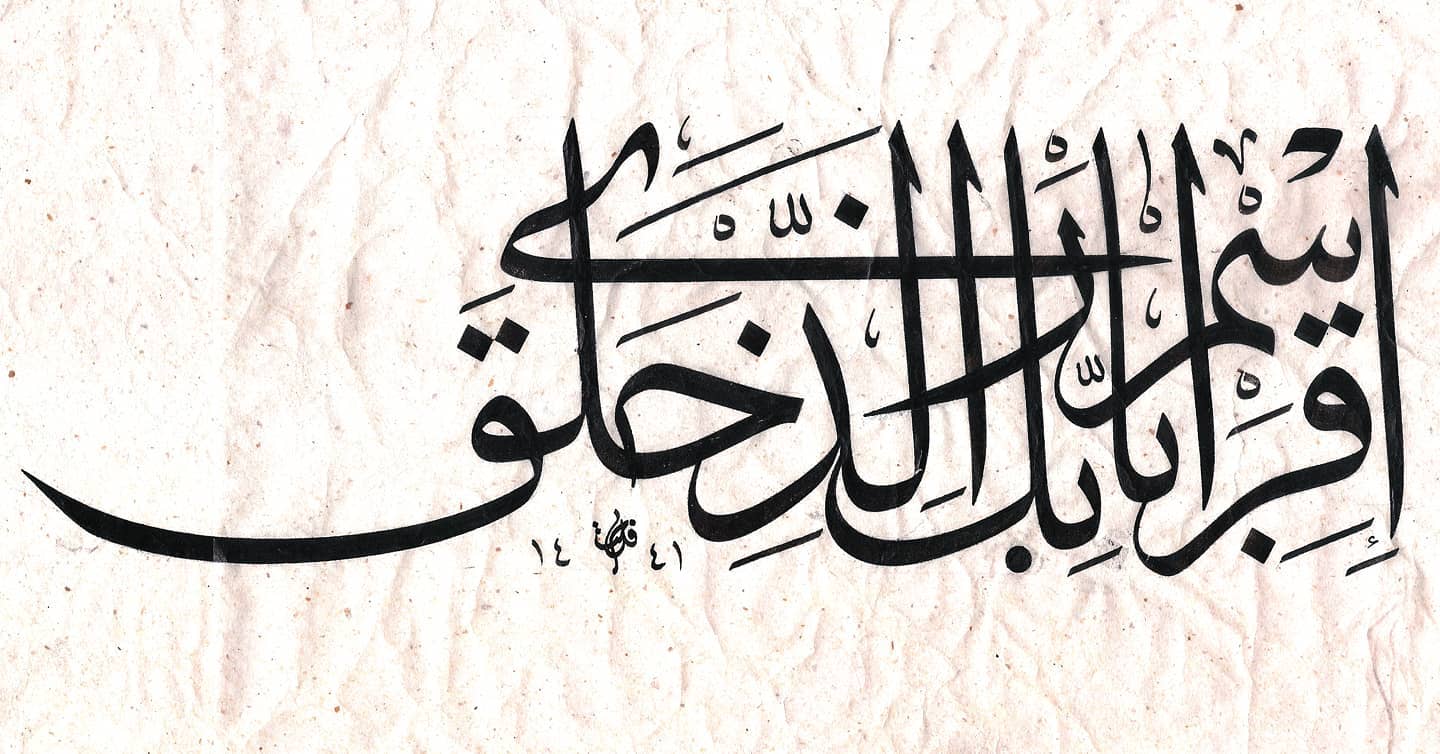 اِقْرَأْ بِاسْمِ رَبِّكَ الَّذِي خَلَقَ
١٤ ٤١